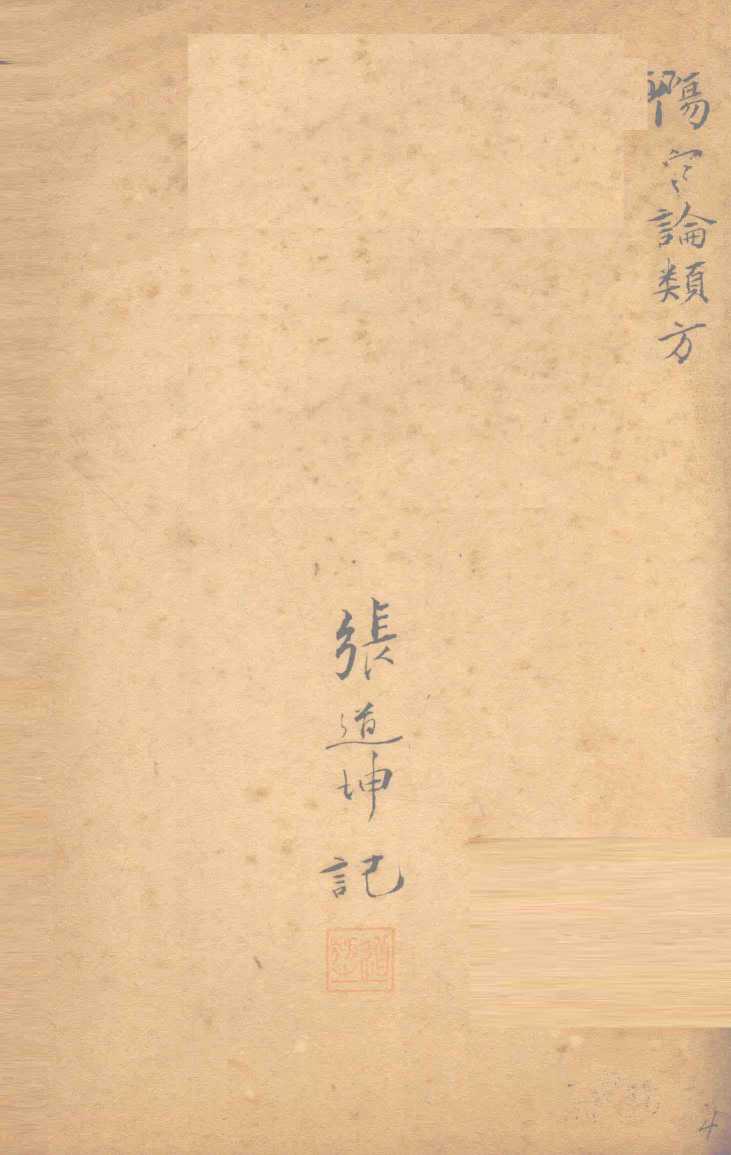 傷寒論類方
張道坤記
4